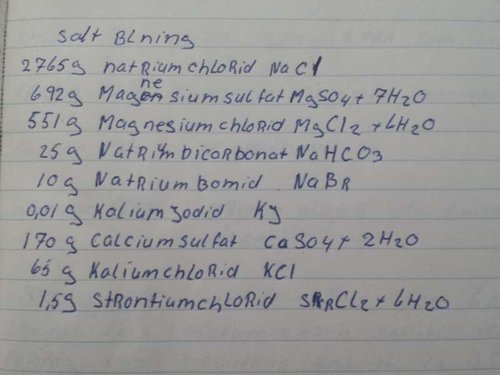 Salt Blning
2765g natriumchlorid NaCl
692g Magnesiumsulfat MgSO4 + 7H2O
551g Magnesiumchlorid MgCl2 + 6H2O
25g Natriumbicarbonat NaHCO3
10g Natriumbomid NaBr
0,01g Kaliumjodid Kj
170g Calciumsulfat CaSO4 + 2H2O
65g Kaliumchlorid KCl
1,5g Strontiumchlorid SrCl2 + 6H2O